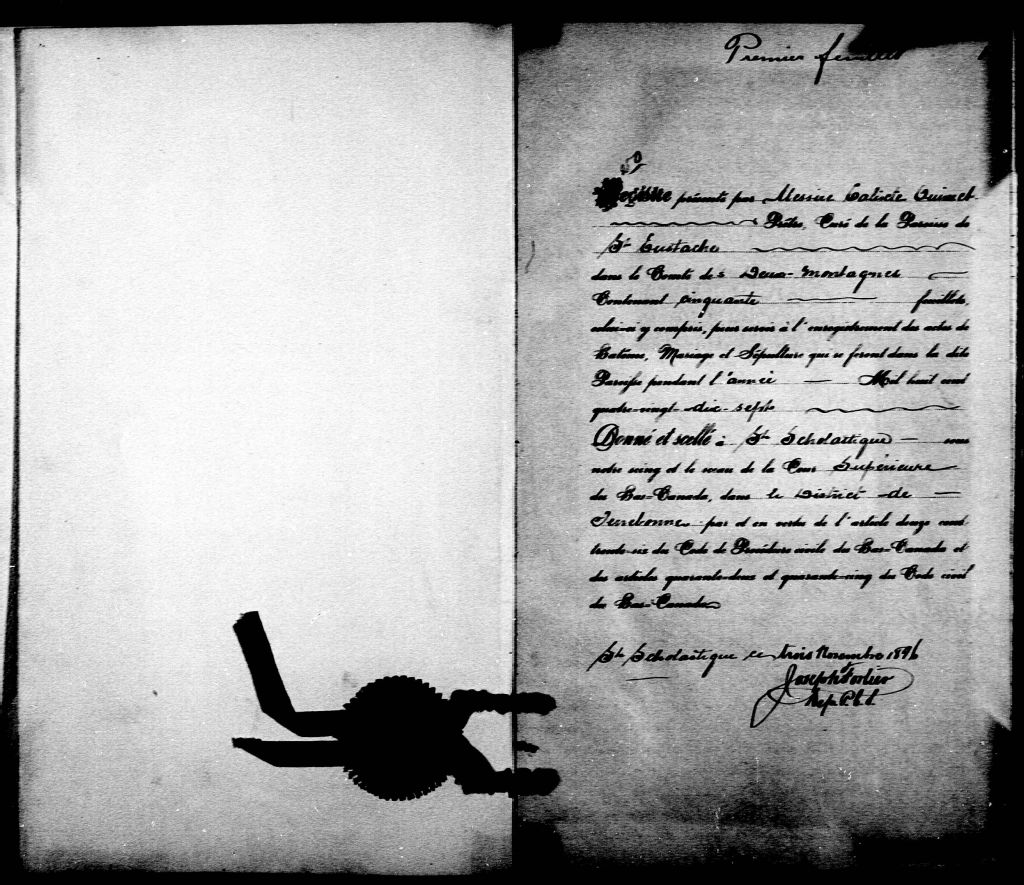 Premier feuillet
50
Registre présenté par Messire Calixte Ouimet
Prêtre, Curé de la Paroisse de
St Eustache
dans le Comté des Deux-Montagnes
Contenant cinquante feuillets,
celui-ci y compris, pour servir à l'enregistrement des actes de
Batême, Mariage et Sépulture qui se feront dans la dite
Paroisse pendant l'année Mil huit cent
quatre-vingt-dix-sept
Donné et scellé à St Scholastique sous
notre seing et le sceau de la Cour Supérieure
du Bas-Canada, dans le District de
Terrebonne par et en vertu de l'article douze cent
trente-six du Code de Procédure civile du Bas-Canada et
des articles quarante-deux et quarante-cinq du Code civil
du Bas-Canada
St Scholastique ce trois Novembre 1896
Joseph Fortier
Dep. P. C. S.